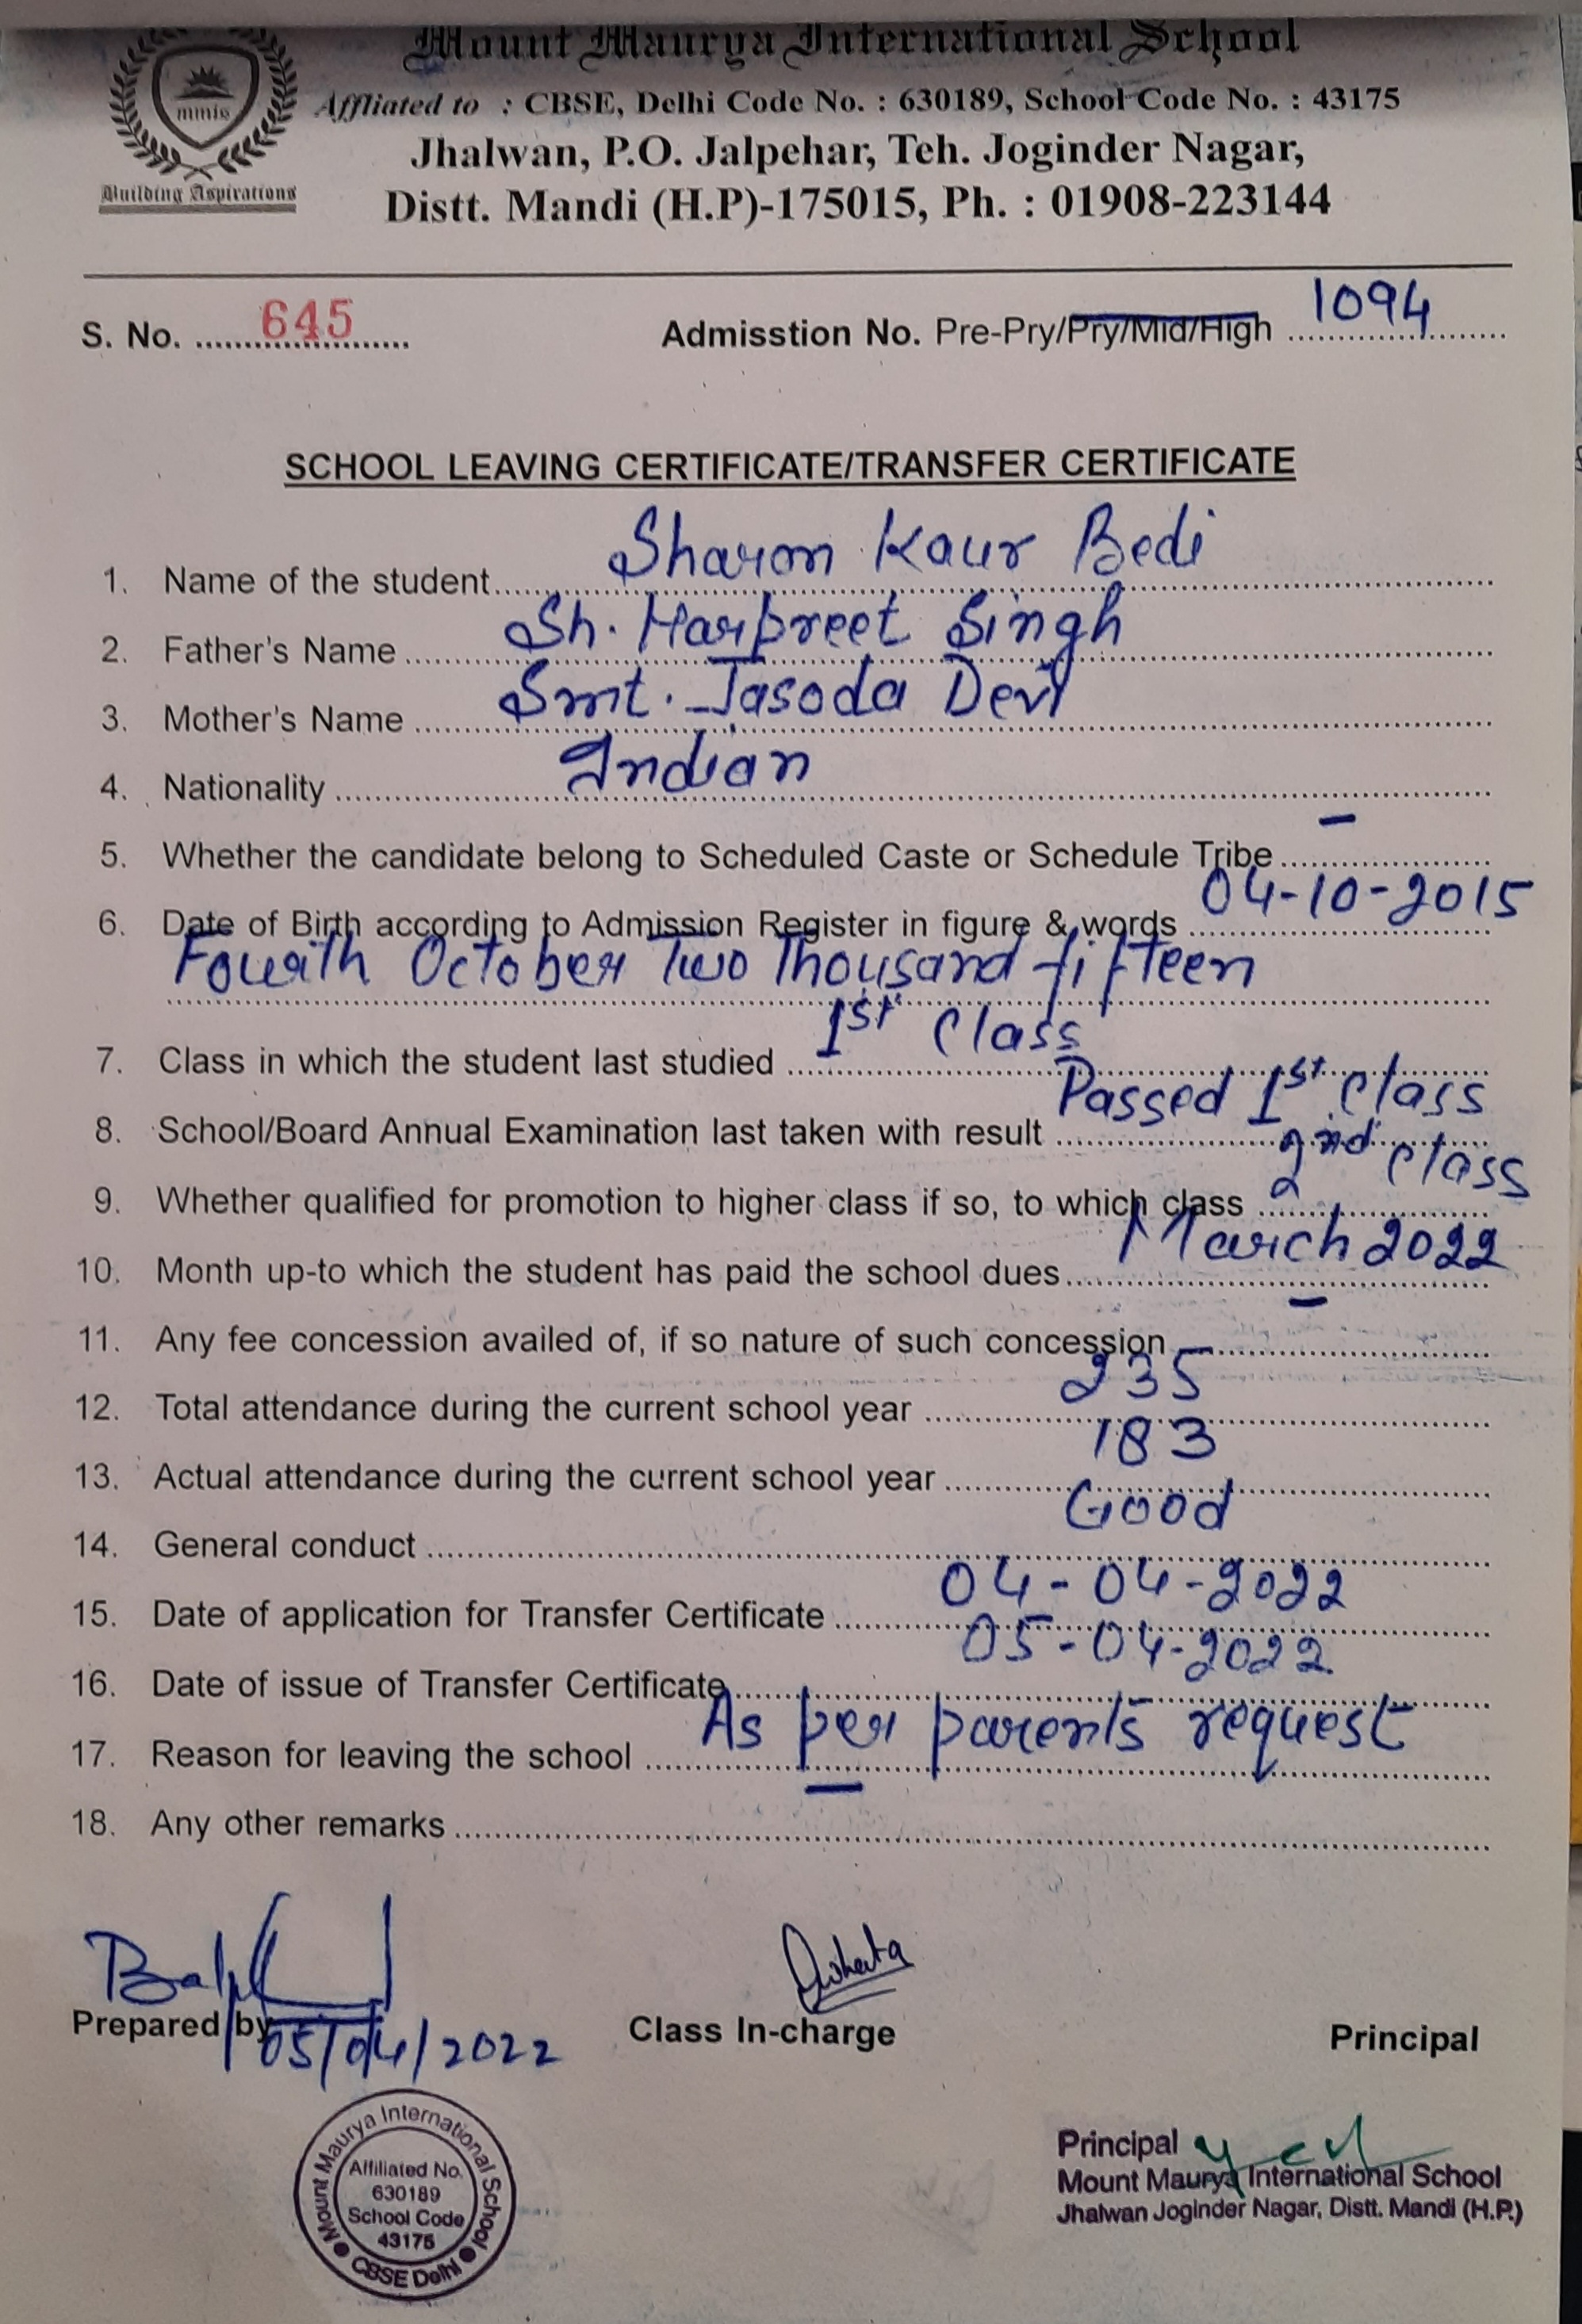 Mount Maurya International School
mmis
Building Aspirations
Affliated to : CBSE, Delhi Code No. : 630189, School Code No. : 43175
Jhalwan, P.O. Jalpehar, Teh. Joginder Nagar,
Distt. Mandi (H.P)-175015, Ph. : 01908-223144
S. No. 645 Admisstion No. Pre-Pry/Pry/Mid/High 1094
SCHOOL LEAVING CERTIFICATE/TRANSFER CERTIFICATE
1. Name of the student Sharon Kaur Bedi
2. Father's Name Sh. Harpreet Singh
3. Mother's Name Smt. Jasoda Devi
4. Nationality Indian
5. Whether the candidate belong to Scheduled Caste or Schedule Tribe –
6. Date of Birth according to Admission Register in figure & words 04-10-2015
Fourth October Two Thousand fifteen
7. Class in which the student last studied 1st Class
8. School/Board Annual Examination last taken with result Passed 1st Class
9. Whether qualified for promotion to higher class if so, to which class 2nd Class
10. Month up-to which the student has paid the school dues March 2022
11. Any fee concession availed of, if so nature of such concession –
12. Total attendance during the current school year 235
13. Actual attendance during the current school year 183
14. General conduct Good
15. Date of application for Transfer Certificate 04-04-2022
16. Date of issue of Transfer Certificate 05-04-2022
17. Reason for leaving the school As per parents request
18. Any other remarks –
Prepared by Class In-charge Principal
05/04/2022
Mount Maurya International School
Affiliated No.
630189
School Code
43175
CBSE Delhi
Principal
Mount Maurya International School
Jhalwan Joginder Nagar, Distt. Mandi (H.P.)